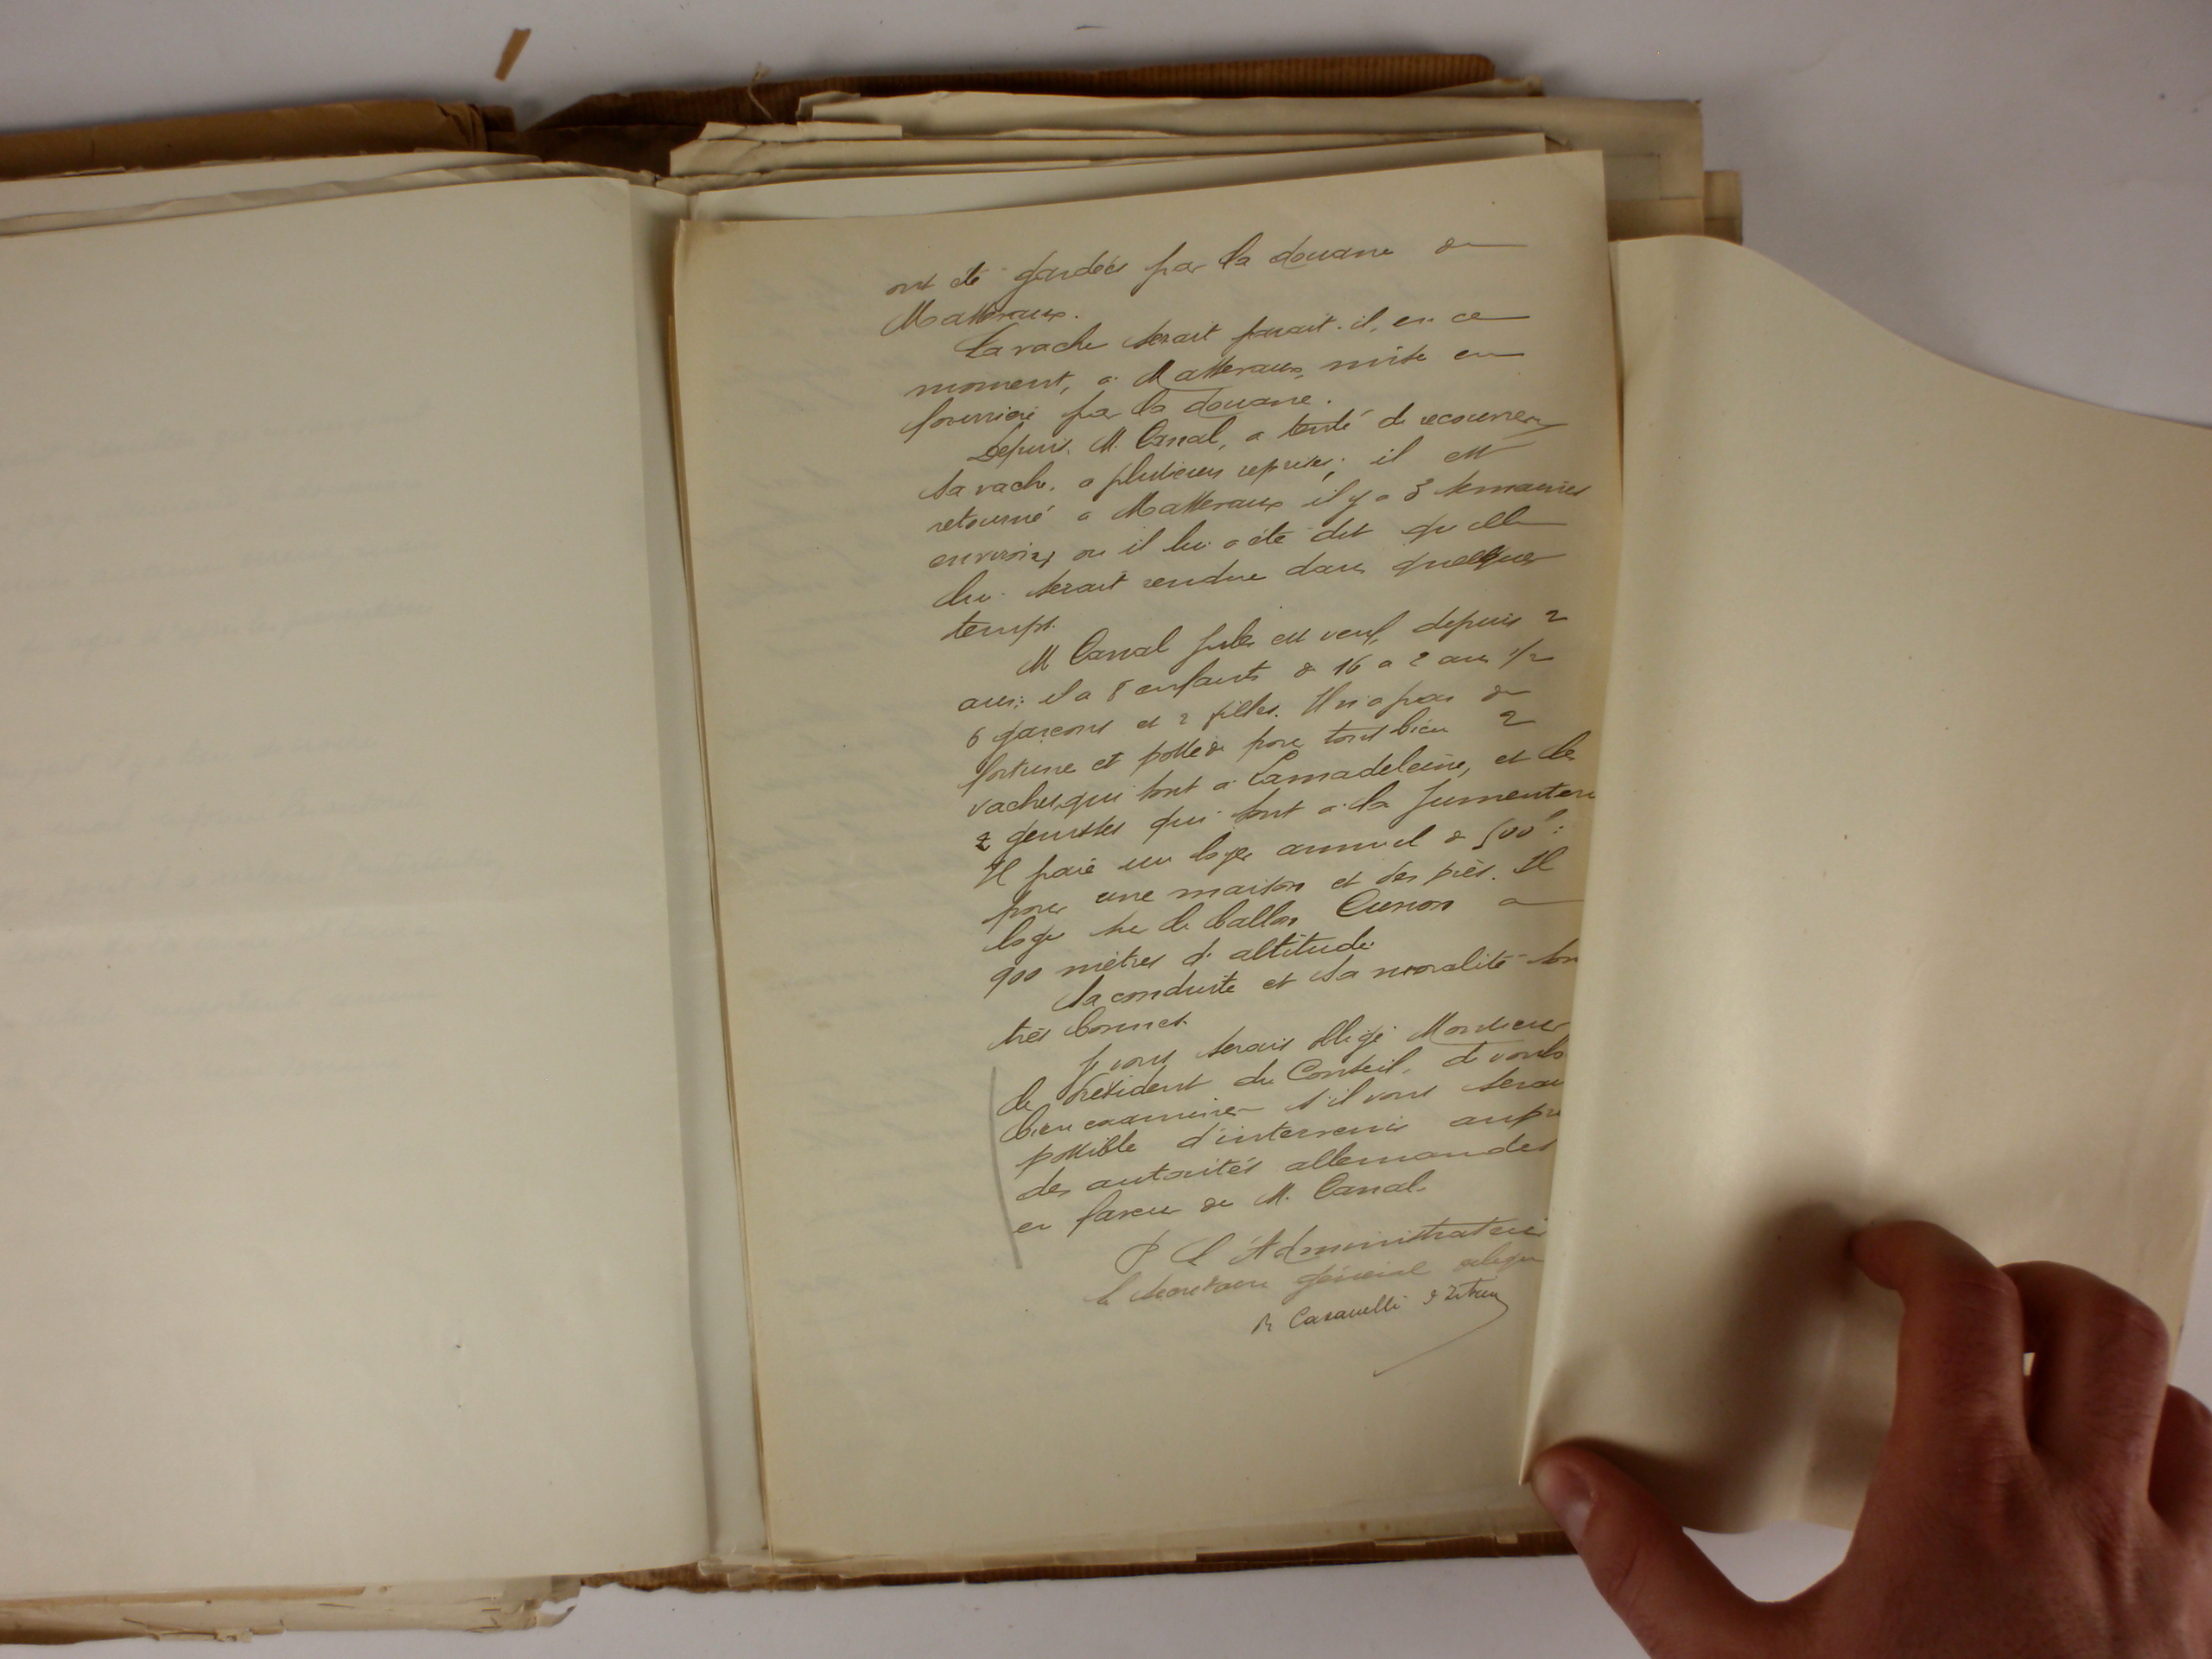 ont été gardées par la douane de
Masevaux.
La vache serait parait-il, en ce
moment, à Massevaux, mise en
fourrière par la douane.
Depuis, M. Canal, a tenté de recouvrer
sa vache, a plusieurs reprises; il est
retourné a Massevaux il y a 3 semaines
environ, ou il lui a été dit qu'elle
lui serait rendue dans quelques
temps.
M Canal Jules est veuf, depuis 2
ans; il a 8 enfants de 16 a 2 ans 1/2
6 garçons et 2 filles. Il n'a pas de
fortune et possède pour tout bien 2
vaches, qui sont à Lamadeleine, et les
2 genisses qui sont à la Jumenterie
Il paie un loyer annuel de 500f:
pour une maison et des près. Il
loge sur le ballon à
900 mètres d'altitude.
Sa conduite et sa moralité son
très bonnes.
Je vous serais obligé Monsieur
le Président du Conseil, de voulo
bien examiner s'il vous serai
possible d'intervenir auprè
des autorités allemandes
en faveur de M. Canal.
P l'Administrateur
le Secrétaire général délégué